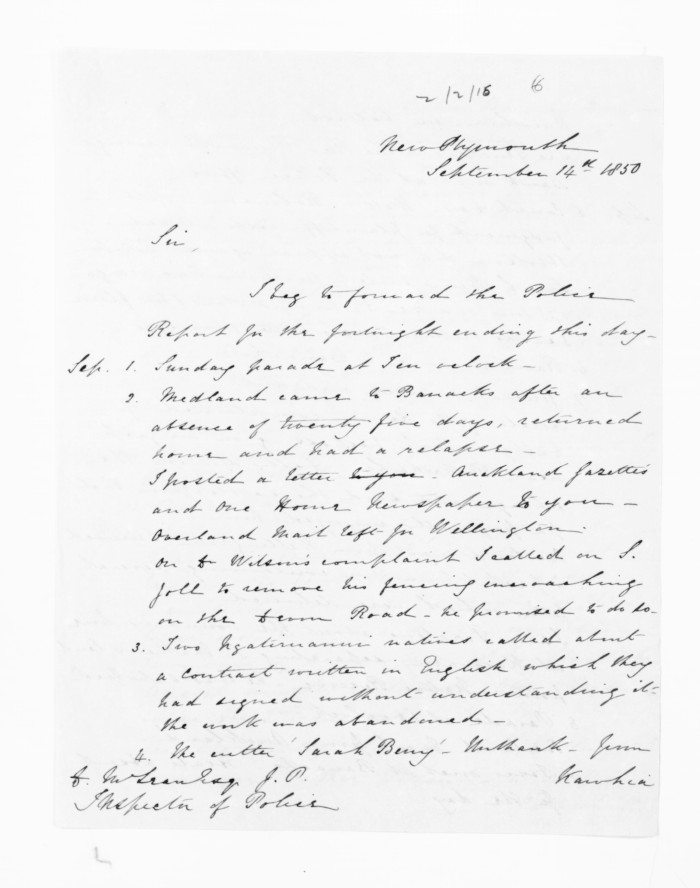 2/2/16 6
New Plymouth
September 14th 1850
Sir,
I beg to forward the Police
Report for the fortnight ending this day-
Sep. 1. Sunday parade at Ten oclock-
2. Medland came to Barracks after an
absence of twenty five days, returned
home and had a relapse-
I posted a letter to you. Auckland Gazettes
and One Home Newspaper to you-
Overland Mail left for Wellington.
On D Wilson's complaint I called on S.
Joll to remove his fencing encroaching
on the Devon Road - he promised to do so-
3. Two Ngatiruanui natives called about
a contract written in English which they
had signed without understanding it-
the work was abandoned-
4. The cutter 'Sarah Berry'- Unthank- from
Kawhia
D. McLean Esq J.P.
Inspector of Police